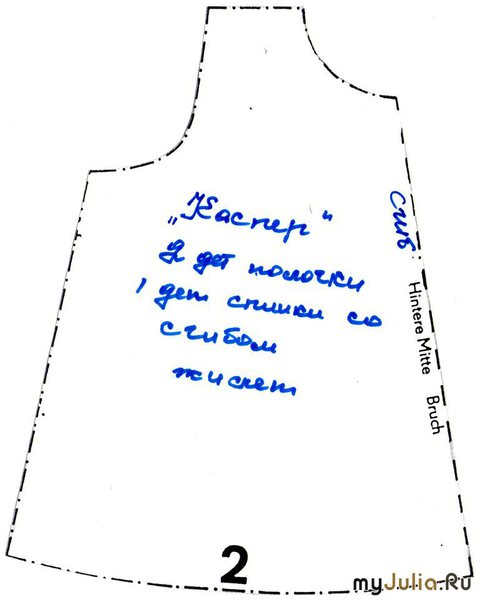 "Каспер"
2 дет полочки
1 дет спинки со
сгибом
жилет
сгиб
Hintere Mitte Bruch
2
myJulia.Ru